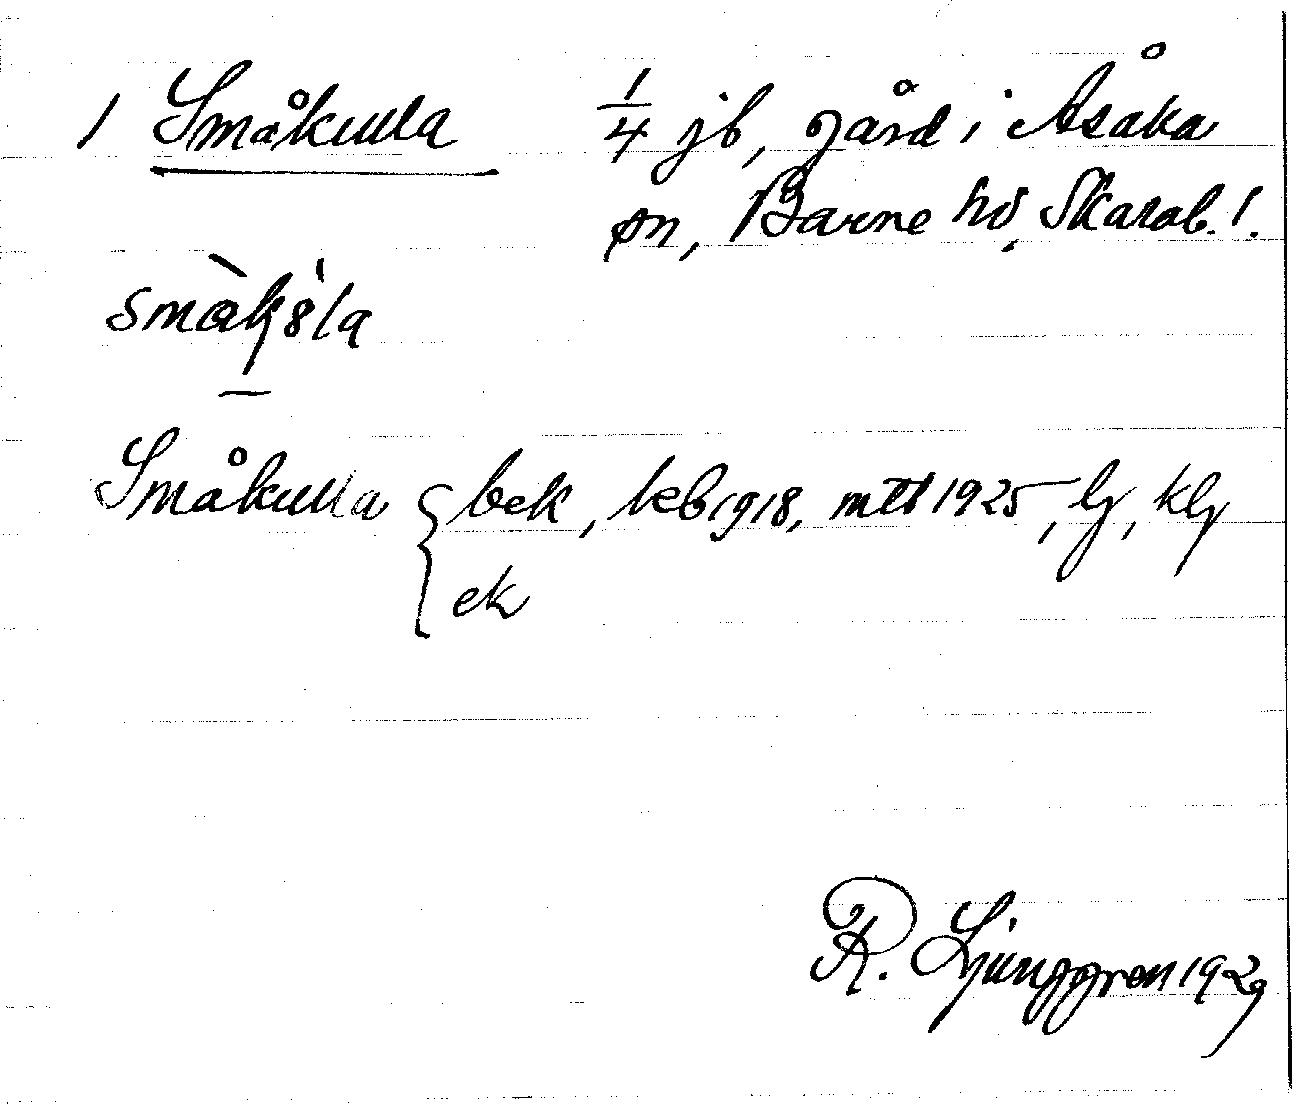 1 Småkulla ¼ jb, gård i Åsaka
sn, Barne hd, Skarab. l.
Småkulla { bek, keb 1918, mtl 1925, lg, klg
ek
R. Ljunggren 1929